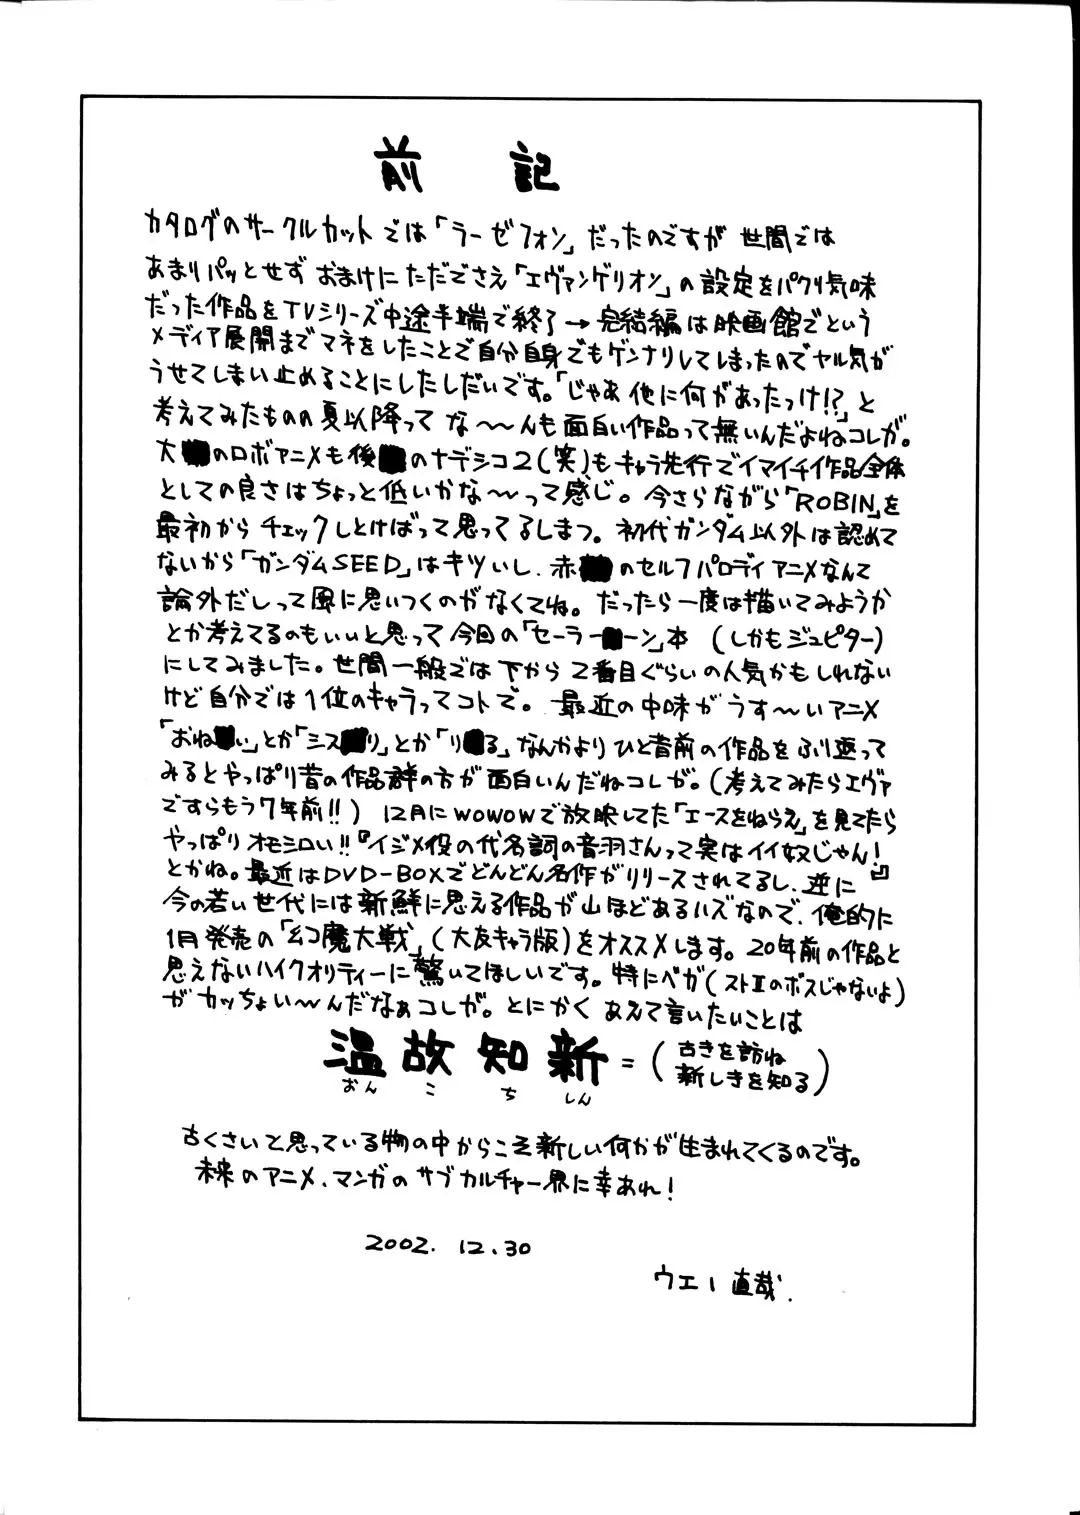 前記
カタログのサークルカットでは「ラーゼフォン」だったのですが世間では
あまりパッとせずおまけにただでさえ「エヴァンゲリオン」の設定をパクリ気味
だった作品をTVシリーズ中途半端で終了→完結編は映画館でという
メディア展開までマネをしたことで自分自身でもゲンナリしてしまったのでヤル気が
うせてしまい止めることにしたしだいです。「じゃあ他に何があったっけ!?」と
考えてみたものの夏以降ってな〜〜んも面白い作品って無いんだよねコレが。
大■のロボアニメも後■のナデシコ2(笑)もキャラ先行でイマイチ作品全体
としての良さはちょっと低いかな〜〜って感じ。今さらながら「ROBIN」を
最初からチェックしとけばって思ってるしまつ。初代ガンダム以外は認めて
ないから「ガンダムSEED」はキツいし、赤■のセルフパロディアニメなんて
論外だしって風に思いつくのがなくてね。だったら一度は描いてみようか
とか考えてるのもいいと思って今回の「セーラー■ーン」本(しかもジュピター)
にしてみました。世間一般では下から2番目ぐらいの人気かもしれない
けど自分では1位のキャラってコトで。最近の中味がうす〜いアニメ
「おね■い」とか「シス■リ」とか「リ■る」なんかよりひと昔前の作品をふり返って
みるとやっぱり昔の作品群の方が面白いんだねコレが。(考えてみたらエヴァ
ですらもう7年前!!) 12月にWOWOWで放映してた「エースをねらえ」を見てたら
やっぱりオモシロい!!『イジメ役の代名詞の音羽さんって実はイイ奴じゃん!』
とかね。最近はDVD-BOXでどんどん名作がリリースされてるし、逆に
今の若い世代には新鮮に思える作品が山ほどあるハズなので、俺的に
1月発売の「幻魔大戦」(大友キャラ版)をオススメします。20年前の作品と
思えないハイクオリティーに驚いてほしいです。特にベガ(ストⅡのボスじゃないよ)
がカッちょい〜んだなぁコレが。とにかくあえて言いたいことは
温故知新=(古きを訪ね
新しきを知る)
おんこちしん
古くさいと思っている物の中からこそ新しい何かが生まれてくるのです。
未来のアニメ、マンガのサブカルチャー界に幸あれ!
2002.12.30
ウエー直哉.